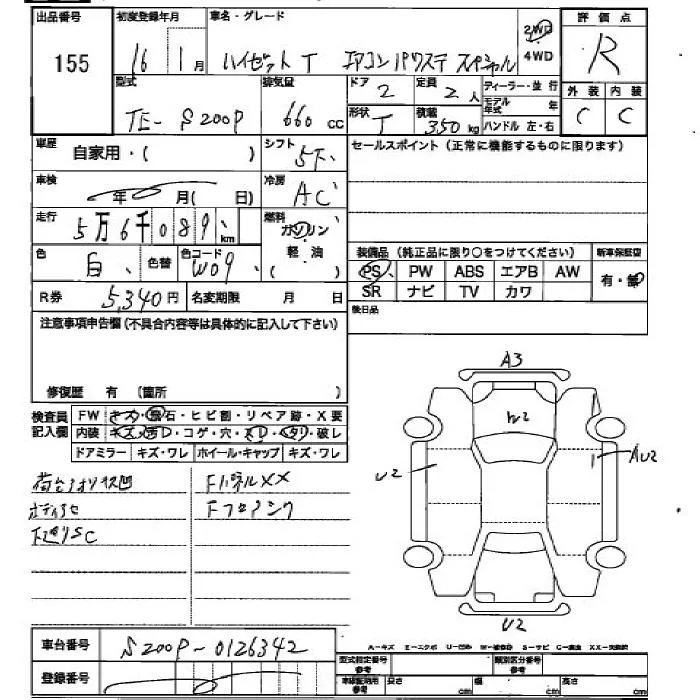 出品番号 155
初度登録年月 16 1月
車名・グレード ハイゼットT エアコン パワステ スペシャル
2WD
4WD
評価点 R
外装 内装
C C
型式 TE-S200P
排気量 660 cc
ドア 2
定員 2人
形状 T
積載 350kg
ディーラー・並行
モデル年式 年
ハンドル 左・右
車歴 自家用・( )
シフト 5F
セールスポイント(正常に機能するものに限ります)
車検 年 月( 日)
冷房 AC
走行 5万6千089km
燃料 ガソリン
軽油
( )
色 白 色替
色コード W09
R券 5,340円
名変期限 月 日
装備品(純正品に限り○をつけてください)
新車保証書
PS PW ABS エアB AW
有・無
SR ナビ TV カワ
後日品
注意事項申告欄(不具合内容等は具体的に記入して下さい)
修復歴 有(箇所 )
検査員記入欄
FW キズ・飛石・ヒビ割・リペア跡・X要
内装 キズ・汚レ・コゲ・穴・スレ・ヘタリ・破レ
ドアミラー キズ・ワレ ホイール・キャップ キズ・ワレ
荷台アオリ 凹
FパネルXX
ボディ
Fフロア
下廻りSC
A3
W2
U2
AU2
U2
A-キズ E-エクボ U-凹み W-補修跡 S-サビ C-腐食 XX-交換済
車台番号 S200P-0126342
登録番号
型式指定番号 参考
類別区分番号 参考
車検証期時 参考
長さ cm
幅 cm
高さ cm